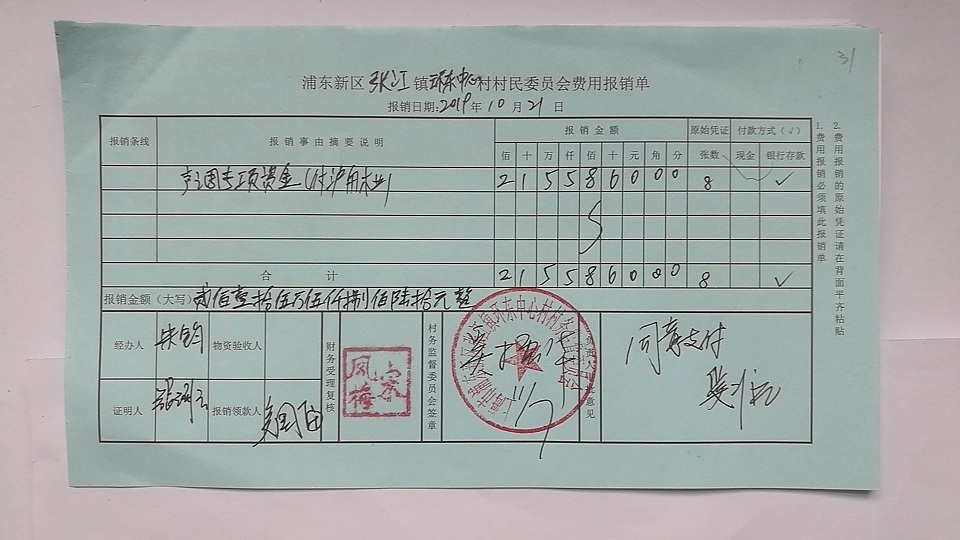 31
浦东新区张江镇环东中心村村民委员会费用报销单
报销日期:2019年10月21日
报销条线 报销事由摘要说明 报销金额 原始凭证 付款方式(√)
佰 十 万 仟 佰 十 元 角 分 张数 现金 银行存款
专项资金 2 1 5 5 8 6 0 0 0 8 √
合计 2 1 5 5 8 6 0 0 0 8 √
报销金额(大写) 贰佰壹拾伍万伍仟捌佰陆拾元整
经办人 朱钧 物资验收人 财务受理复核 凤梅 宋 村务监督委员会签章 意见 同意支付
证明人 报销领款人
1. 费用报销必须填此报销单
2. 费用报销的原始凭证请在背面平齐粘贴